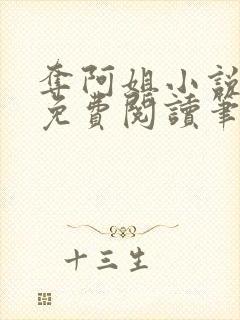 奪阿姐小說
免費閱讀筆
十三生